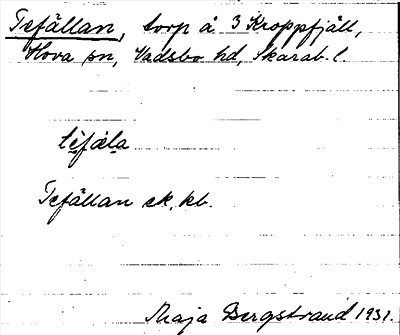 Tefällan, torp å 3 Kroppfjäll,
Hova sn, Vadsbo hd, Skarab. l.
tefäla
Tefällan ek. kb.
Maja Bergstrand 1931.